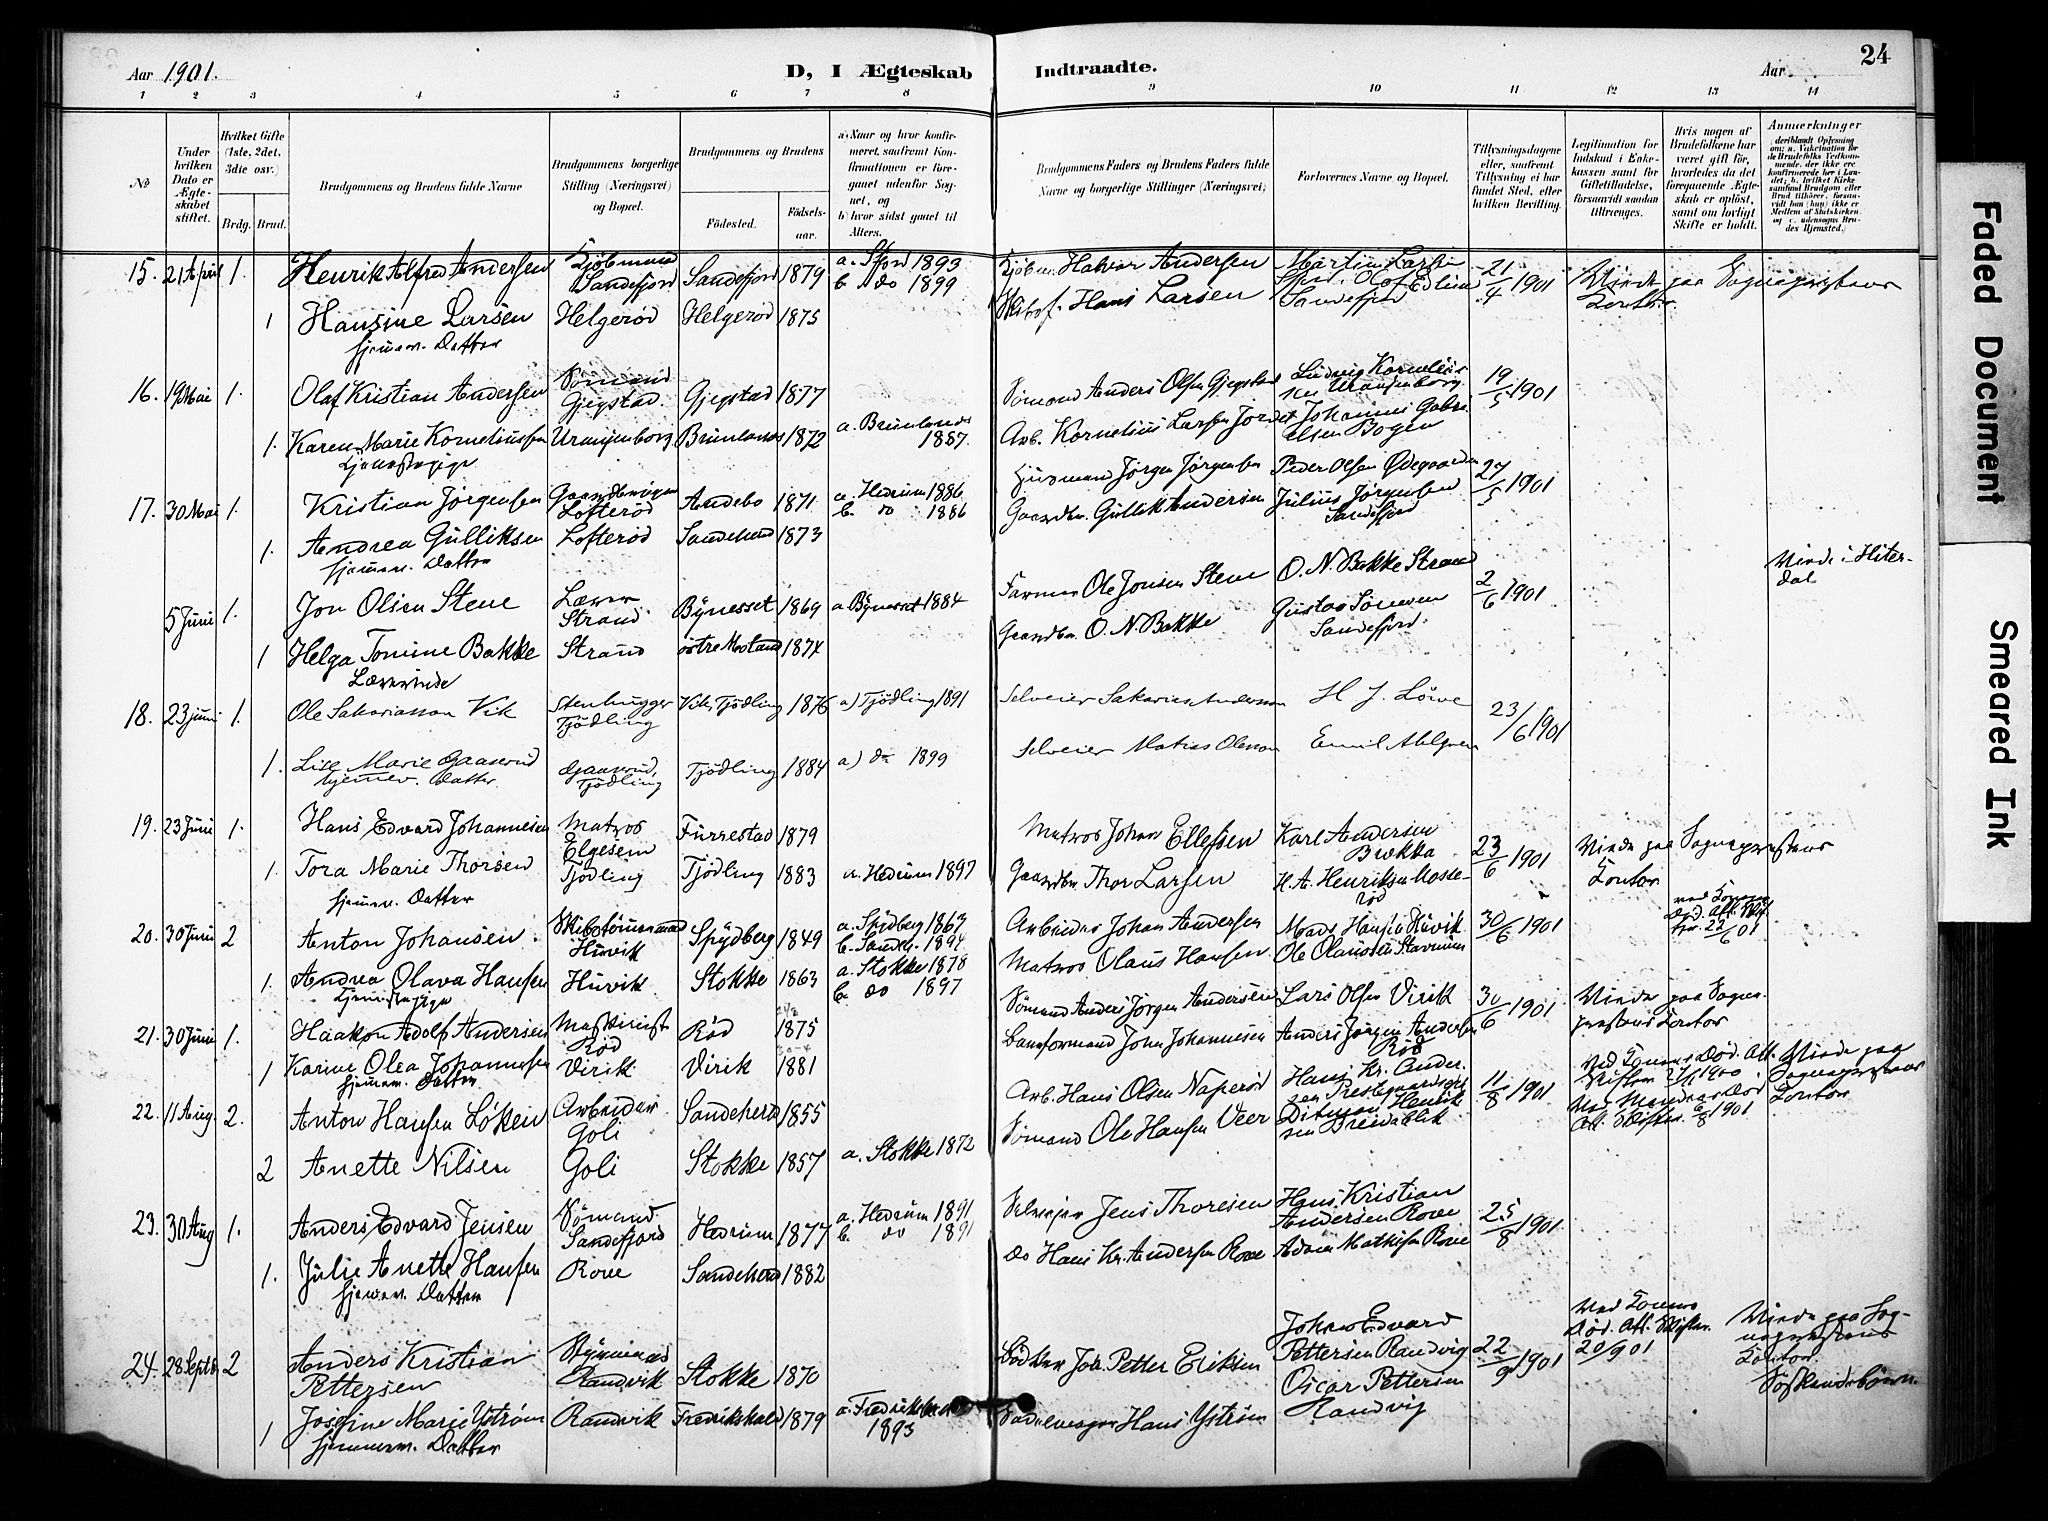 24
Aar 1901.
D, I Ægteskab Indtraadte.
Aar
1 2 3 4 5 6 7 8 9 10 11 12 13 14
No
Under hvilken Dato er Ægteskabet stiftet.
Hvilket Gifte (1ste, 2det, 3die osv.)
Brdg. Brud.
Brudgommens og Brudens fulde Navne
Brudgommens borgerlige Stilling (Næringsvei) og Bopæl.
Brudgommens og Brudens
Fødested. Fødselsaar.
a) Naar og hvor konfirmeret, samt om Konfirmationen er foregaaet udenfor Sognet, og
b) hvor sidst gaaet til Alters.
Brudgommens Faders og Brudens Faders fulde Navne og borgerlige Stillinger (Næringsvei)
Forlovernes Navne og Bopæl.
Tillysningsdagene eller, saafremt Tillysning ei har fundet Sted, efter hvilken Bevilling.
Legitimation for Indskud i Enkekassen samt for Giftetilladelse, forsaavidt saadan tiltrænges.
Hvis nogen af Brudefolkene har været gift før, hvorledes da det foregaaende Ægteskab er opløst, samt om lovligt Skifte er holdt.
Anmærkninger
15. 21 April 1. Henrik Alfred Andersen Kjøbmand Sandefjord Sandefjord 1879 a. Sfjord 1893 b. do 1899 Kjøbm. Halvor Andersen Martin Larsen 21/4 1901 Viede paa Sogneprestens Kontor.
1 Hansine Larsen Helgerød Helgerød 1875 Hans Larsen Sandefjord
hjemmev. Datter
16. 19 Mai 1. Olaf Kristian Andersen Sømand Gjegstad Gjegstad 1877 Sømand Anders Olsen Gjegstad Ludvig Kornelius- 19/5 1901
1. Karen Marie Korneliussen Uranienborg Brunlanes 1872 a. Brunlanes 1887. Arb. Kornelius Larsen Jordet Johannes Gabrielsen Bogen
Tjenestepige
17. 30 Mai 1. Kristian Jørgensen Gaardbruger Lofterød Andebo 1871 a. Hedrum 1886 b. do 1886 Husmand Jørgen Jørgensen Peder Olsen Ødegaarden 27/5 1901
1. Andrea Gulliksen Lofterød Sandeherd 1873 Gaardbr. Gullik Andersen Julius Jørgensen Sandefjord
hjemmev. Datter
5 Juni 1. Jon Olsen Stene Lærer Strand Bynesset 1869 a Bynesset 1884 Farmer Ole Jonsen Stene O. N. Bakke Strand 2/6 1901 Viede i Hiterdal
1 Helga Tomine Bakke Strand 1874 Gaardbr. O. N. Bakke Gustav Sandefjord.
Lærerinde
18. 23 juni 1. Ole Sakariasson Vik Stenhugger Tjødling Vik, Tjødling 1876 a) Tjødling 1891 Selveier Sakarias Anderson H J. Løwe 23/6 1901
1. Lise Marie Gaaserud Gaaserud, Tjødling Tjødling 1884 a) do 1899 Selveier Matias Olesson Emil Ahlgren
hjemmev. Datter.
19. 23 Juni 1. Hans Edvard Johannesen Matros Elgesem Furrestad 1879 Matros Johan Ellefsen Karl Andersen Brekka 23/6 1901 Viede paa Sogneprestens Kontor
1. Tora Marie Thorsen Tjødling Tjødling 1883 a. Hedrum 1897 Gaardbr Thor Larsen H. A. Henriksen Mosserød
hjemmev. Datter
20. 30 Juni 2 Anton Johansen. Skibstømmermand Huvik Spydberg 1849 a. Spydberg 1863 b. Sandeh. 1894 Arbeider Johan Andersen Mads Hansen Huvik 30/6 1901 ved Konens Død. Att. Skif 22/6 01
1. Andrea Olava Hansen Huvik Stokke 1863 a. Stokke 1878 b. do 1897 Matros Olaus Hansen Ole Olaussen
Tjenestepige
21. 30 Juni 1. Haakon Adolf Andersen Maskinist Rød Rød 1875 Sømand Anders Jørgen Andersen Lars Olsen Virik 30/6 1901 Viede paa Sogneprestens Kontor
1 Karine Olea Johannesen Virik Virik 1881 John Johannesen Anders Jørgen Andersen Rød
hjemmev. Datter
22. 11 Aug. 2. Anton Hansen Løken Arbeider Goli Sandeherd 1855 Arb. Hans Olsen Naperød Hans Kr. Andersen 11/8 1901 Ved Konens Død. Att. Skiften 1900 Viede paa Sogneprestens Kontor
2 Anette Nilsen Goli Stokke 1857 a. Stokke 1872 Sømand Ole Hansen Veer Ditman Henriksen Breidablik Ved Mandens Død Att. Skiften. 6/8 1901
23. 30 Aug 1. Anders Edvard Jensen Sømand Sandefjord Hedrum 1877 a. Hedrum 1891 b. do 1891 Selveier Jens Thoresen Hans Kristian Andersen Rove 25/8 1901
1. Julie Anette Hansen Rove Sandeherd 1882 do Hans Kr. Andersen Rove Adam Mathisen Rove
hjemmev. Datter
24. 28 Septb 2 Anders Kristian Pettersen Styrmand Randvik Stokke 1870 Bødker Joh. Petter Eriksen Johan Edvard Pettersen Randvig 22/9 1901 Ved Konens Død. Att. Skiften. 20/9 01 Viede paa Sognepræstens Kontor. Søskendebørn.
1 Josefine Marie Ystrøm Randvik Fredrikshald 1879 a. Fredrikshald 1893 Hans Ystrøm Oscar Pettersen Randvig
hjemmev. Datter
Faded Document
Smeared Ink